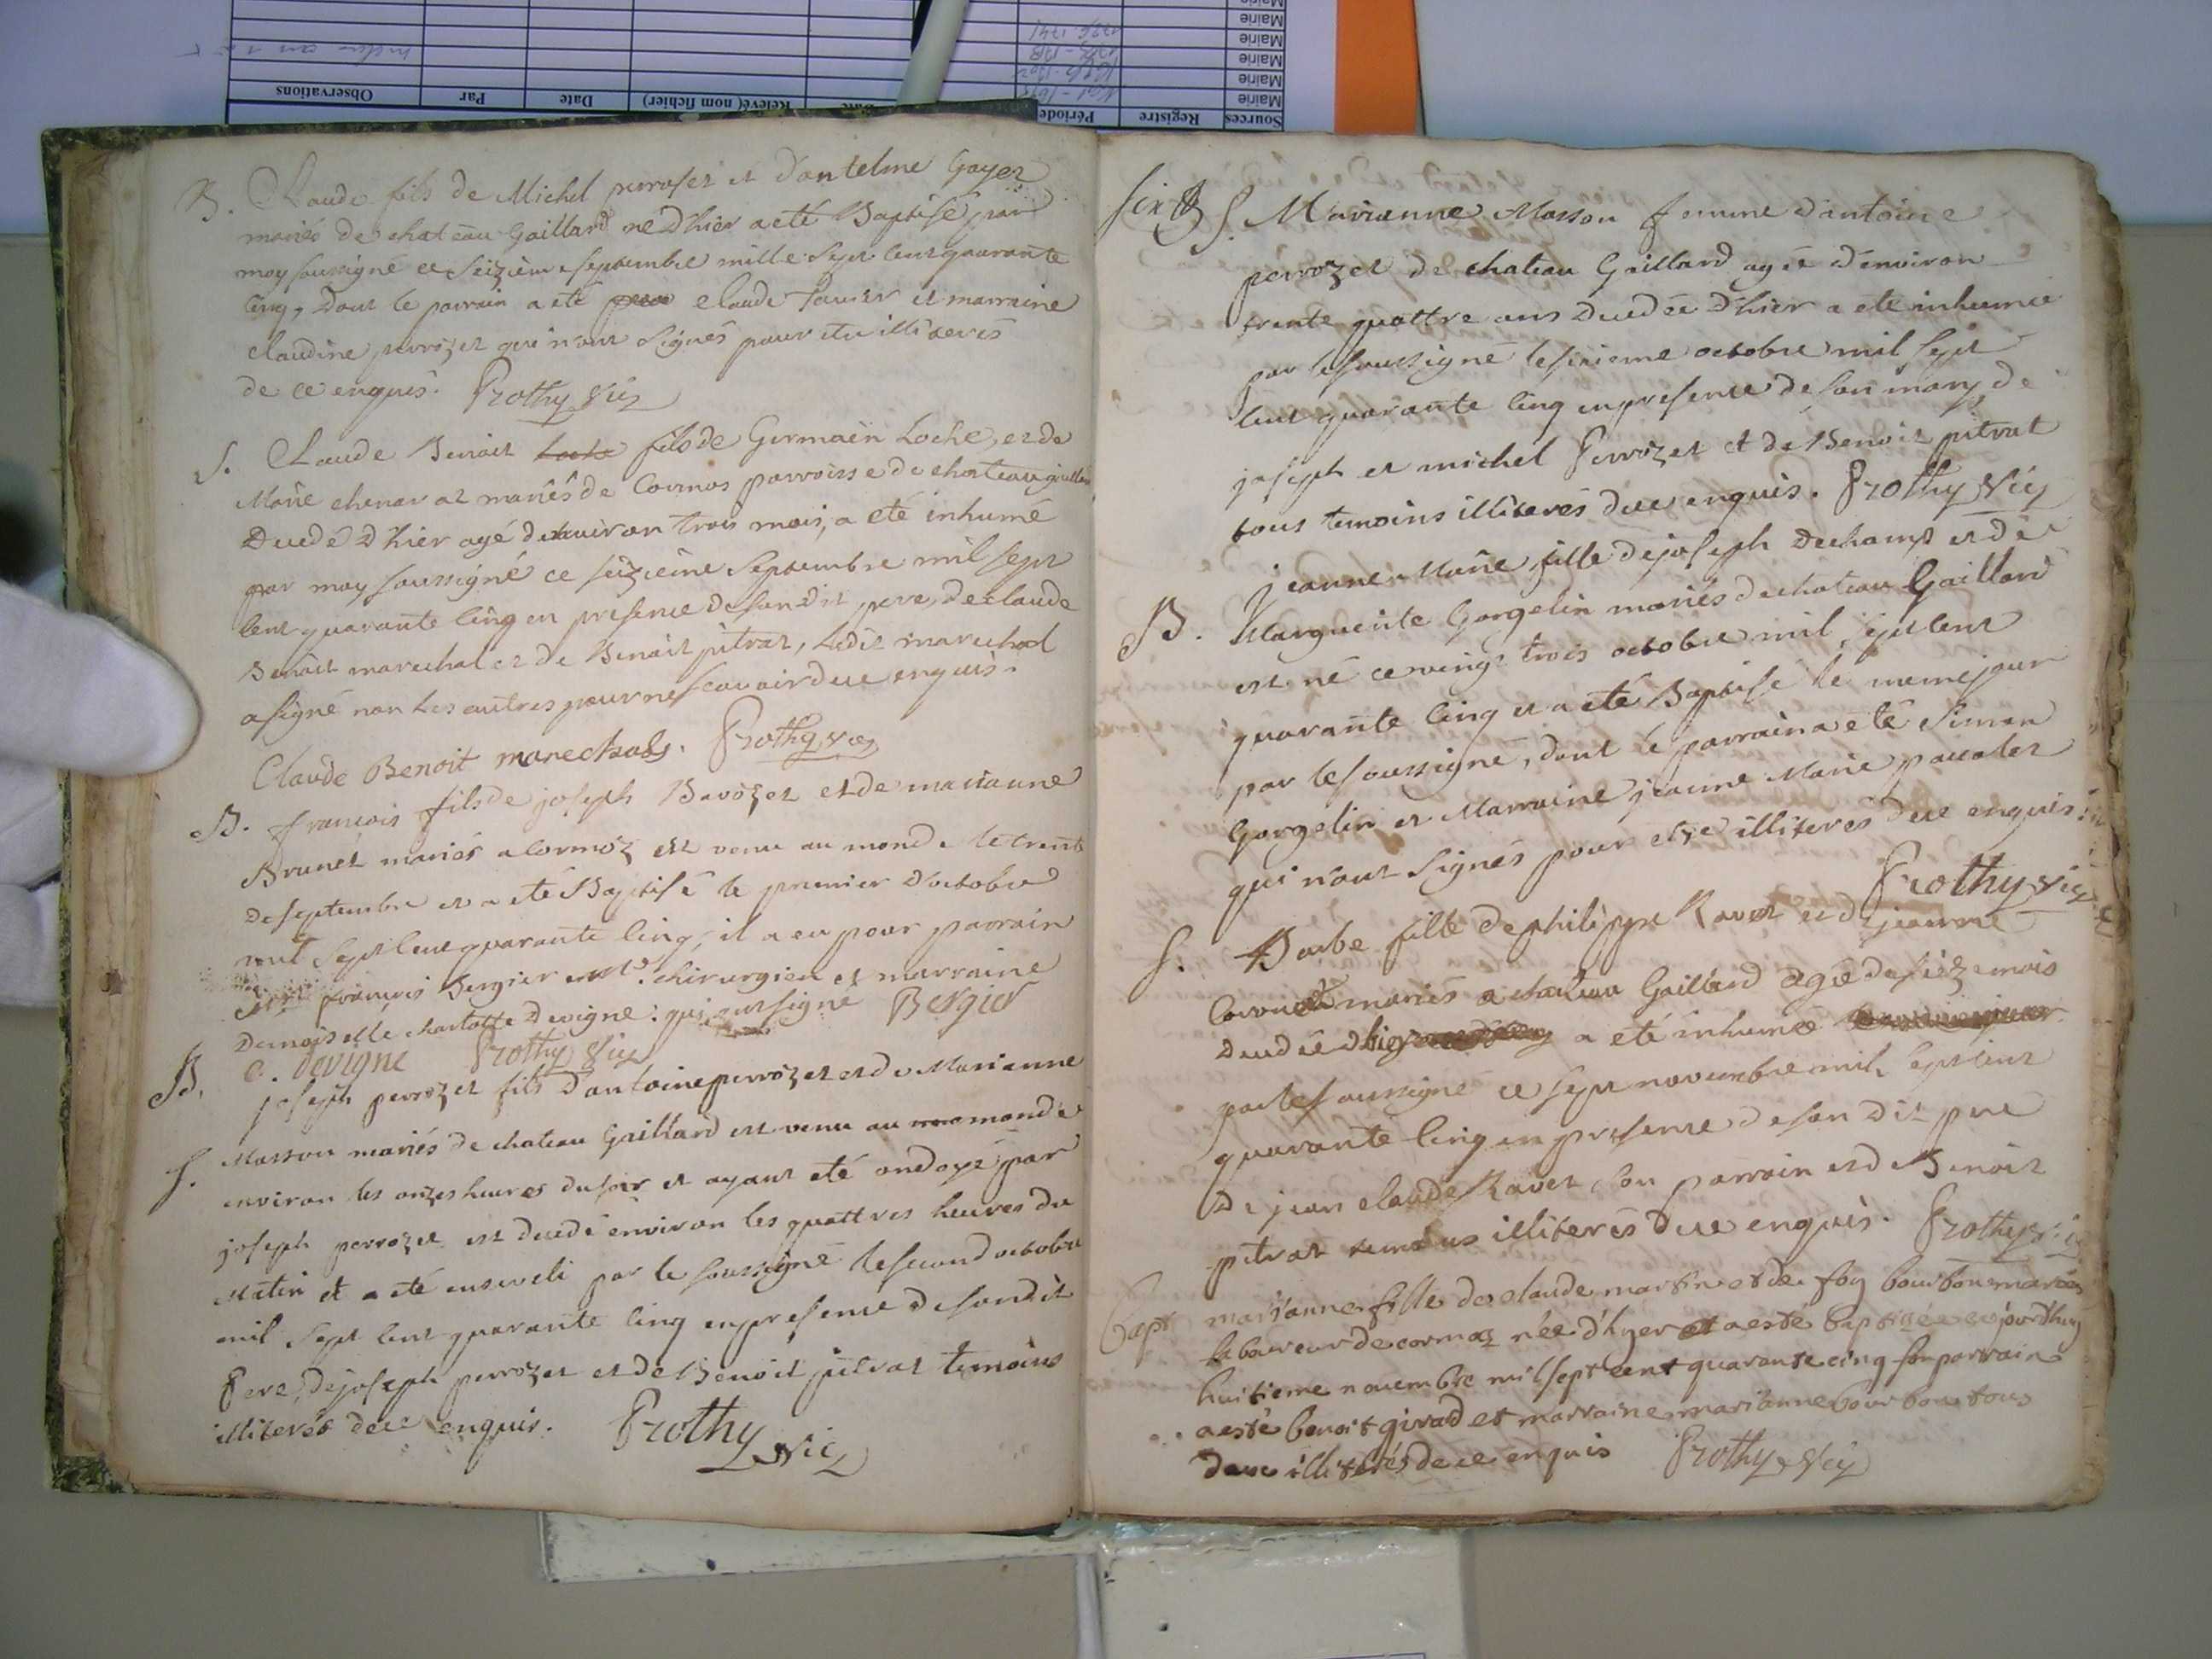 Sources Registre Période Date Relevé( nom fichier) Date Par Observations
Mairie
Mairie
Mairie
Mairie
Mairie
B. Claude fils de Michel perroset et d'antelme Goyer
mariés de chateau Gaillard né d'hier a eté Baptisé par
moy soussigné ce seizieme septembre mille sept cent quarante
cinq, dont le parrain a eté claude et marraine
claudine perrozet qui n'ont signés pour etre illiterés
de ce enquis. Prothy Vic
S. Claude Benoit Loche fils de Germain Loche, et de
Marie chenavat mariés de Cormos parroisse de chateaugaillard
Decedé d'hier agé d'environ trois mois, a eté inhumé
par moy soussigné ce seizieme septembre mil sept
cent quarante cinq en presence de son dit pere, de claude
Benoit marechal et de Benoit pitrat, ledit marechal
a signé non les autres pour ne scavoir de ce enquis.
Claude Benoit marechals. Prothy Vic
B. francois fils de joseph Bavozet et de marianne
Brunet mariés a cormoz est venu au monde le trente
de septembre et a eté Baptisé le premier d'octobre
mil sept cent quarante cinq, il a eu pour parrain
sr. françois Bergier me. chirurgien et marraine
Demoiselle charlotte Devigne: qui ont signé Bergier
c. devigne Prothy Vic
B. joseph perrozet fils d'antoine perrozet et de Marianne
S. Masson mariés de chateau Gaillard est venu au monde
environ les onzes heures du soir et ayant eté ondoyé par
joseph perrozet est decedé environ les quattres heures du
Matin et a eté enseveli par le soussigné le second octobre
mil sept cent quarante cinq en presence de son dit
Pere, de joseph perrozet et de Benoit pitrat temoins
illiterés de ce enquis. Prothy Vic
six S. Marianne Masson femme d'antoine
perrozet de chateau Gaillard agée d'environ
trente quattre ans Decedée d'hier a eté inhumée
par le soussigné le sixieme octobre mil sept
cent quarante cinq en presence de son mary, de
joseph et michel Perrozet et de Benoit pitrat
tous temoins illiterés de ce enquis. Prothy Vic
jeanne Marie fille de joseph Dechamps et de
B. Marguerite Gorgelin mariés de chateau Gaillard
est né ce vingt trois octobre mil sept cent
quarante cinq et a eté Baptisé le meme jour
par le soussigné, dont le parrain a eté Simon
Gorgelin et Marraine jeanne Marie
qui n'ont signés pour etre illiterés de ce enquis
Prothy Vic
S. Barbe fille de philippe Ravet et de jeanne
mariés a chateau Gaillard agée de seize mois
Decedée d'hier a eté inhumée
par le soussigné ce sept novembre mil sept cent
quarante cinq en presence de son dit pere
De jean claude Ravet son parrain et de Benoit
pitrat temoins illiterés de ce enquis. Prothy Vic
Bapt marianne fille de claude martin et de foy bourbon mariés
laboureur de cormoz née d'hyer et a esté baptizée ce jourdhuy
huitieme novembre mil sept cent quarante cinq son parrain
a esté benoit girad et marraine marianne bourbon tous
deux illiterés de ce enquis Prothy Vic